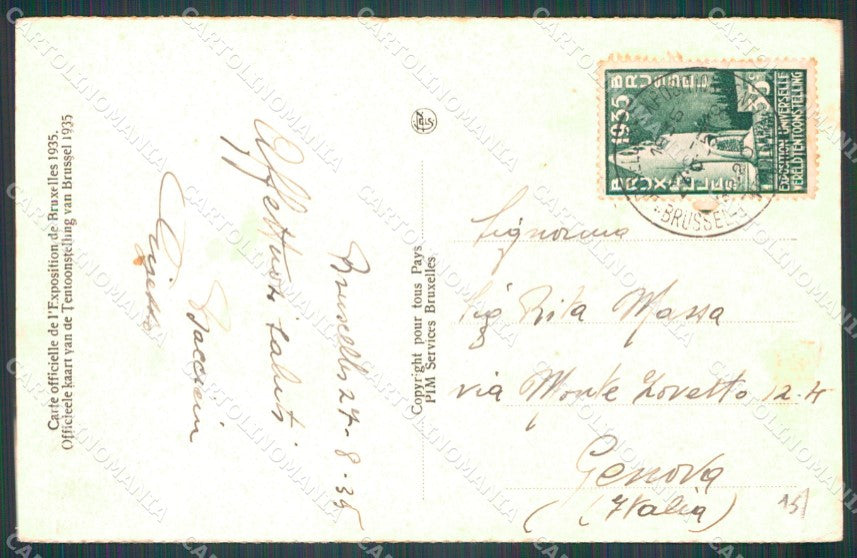 Carte officielle de l'Exposition de Bruxelles 1935.
Officieele kaart van de Tentoonstelling van Brussel 1935
Bruxelles 27-8-35
Affettuosi saluti
Copyright pour tous Pays
PIM Services Bruxelles
1935 BRUSSEL
35c
BRUXELLES
EXPOSITION UNIVERSELLE
WERELDTENTOONSTELLING
BRUSSEL
Signorina
Sig Rita Massa
via Monte Zovetto 12.4
Genova
(Italia)
15/
CARTOLINOMANIA